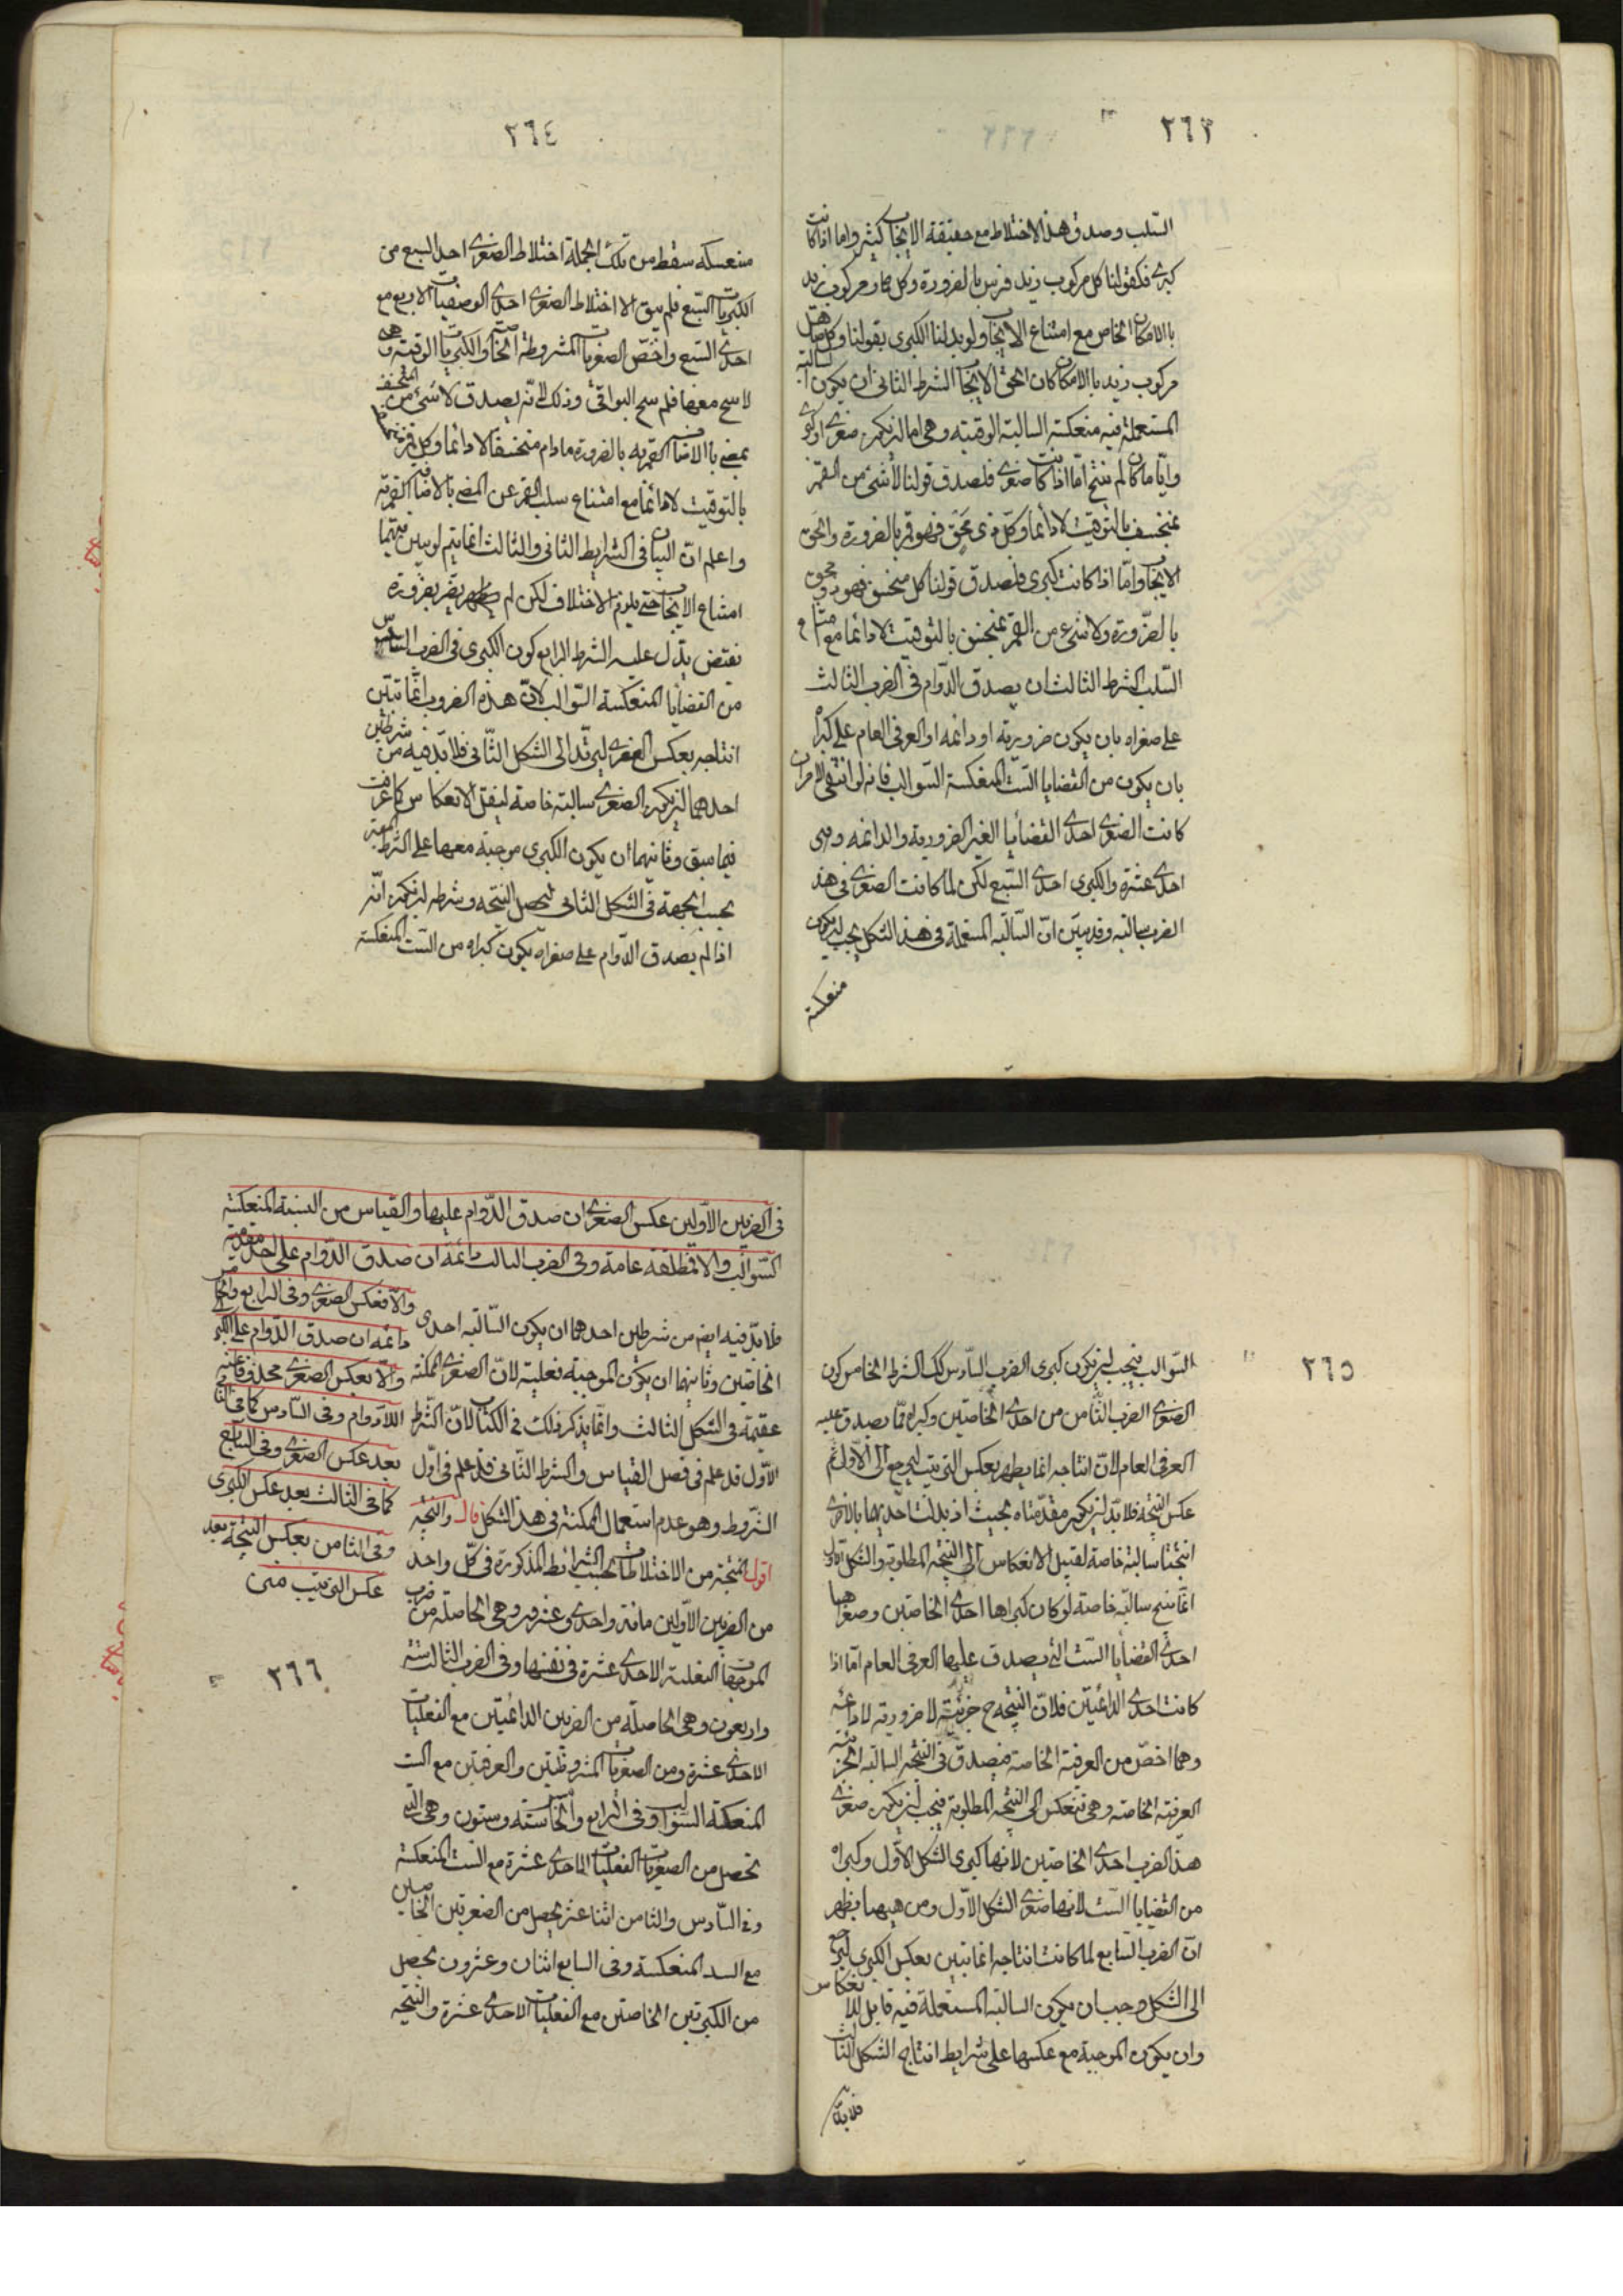 ٢٦٣
السّلب وصدق هذا الاختلاط مع حقيقة الايجاب كثير واما اذا كانت
كبرى فكقولنا كل مركوب زيد فرس بالضرورة وكل حمار مركوب زيد
بالامكان الخاص مع امتناع الايجاب ولو بدلنا الكبرى بقولنا وكل صاهل
مركوب زيد بالامكان كان الحق الايجاب الشرط الثانى ان يكون السالبة
المستعملة فيه منعكسة السالبة الوقتيه وهى اما ان يكون صغرى او كبرى
وايّاما كان لم ينتج امّا اذا كانت صغرى فلصدق قولنا لا شئ من القمر
بمنخسف بالتوقيت لا دائما وكل ذى محق فهو قمر بالضرورة والحق
الايجاب وامّا اذا كانت كبرى فلصدق قولنا كل منخسف فهو ذو محق
بالضرورة ولا شئ من القمر بمنخسف بالتوقيت لا دائما مع امتناع
السّلب الشرط الثالث ان يصدق الدّوام فى الضرب الثالث
على صغراه بان يكون ضرورية او دائمه او العرفى العام على كبراه
بان يكون من القضايا الستّ المنعكسة السّوالب فانه لو انتفى الامران
كانت الصغرى احدى القضايا الغير الضرورية والدائمه وهى
احدى عشرة والكبرى احدى السّبع لكن لما كانت الصغرى فى هذا
الضرب سالبه وقد تبيّن انّ السّالبه المستعملة فى هذا الشكل يجب ان يكون
منعكسة
٢٦٤
منعسكه سقط من تلك الجملة اختلاط الصغرى احدى السبع من
الكبريات السّبع فلم يبق الا اختلاط الصغرى احدى الوصفيات الاربع مع
احدى السّبع واخصّ الصغريات المشروطة الخاصة والكبريات الوقتيه وهى
لا تنتج معها فلم تنتج البواقى وذلك لانّه يصدق لا شئ من المنخسف
بمضئ بالاضافة القمريه بالضرورة مادام منخسفا لا دائما وكل قمر منخسف
بالتوقيت لا دائما مع امتناع سلب القمر عن المضئ بالاضافة القمريّة
واعلم انّ البيان فى الشرايط الثانى والثالث انما يتم لو بين فيهما
امتناع الايجاب حتى يلزم الاختلاف لكن لم يظهر بصر بضرورة
نقيض يدّل عليه الشرط الرابع كون الكبرى فى الضرب السّادس
من القضايا المنعكسة السّوالب لانّ هذه الضروب انّما تبيّن
انتاجه بعكس الصغرى ليرتدّ الى الشكل الثّانى فلا بّد فيه من شرطين
احدهما ان يكون الصغرى سالبة خاصة ليقبل الانعكاس كما عرفت
فيما سبق وثانيهما ان يكون الكبرى موجبة معها على الشرط المعتبر
بحسب الجهة فى الشكل الثانى ليحصل النتيجه وشرطه ان يكون انّه
اذا لم يصدق الدّوام على صغراه يكون كبراه من السّت المنعكسة
٢٦٥
السّوالب فيجب ان يكون كبرى الضرب السّادس كك الشرط الخامس كون
الصغرى الضرب الثّامن من احدى الخاصتين وكبراه ممّا يصدق عليه
العرفى العام لانّ انتاجه انما يظهر بعكس التّرتيب ليرجع الى الاوّل ثم
عكس النتيجة فلا بّد ان يكون مقدّمتاه بحيث اذ بدلت احّديهما بالاخرى
انتجتا سالبة خاصة لقبول الانعكاس الى النتيجه المطلوبة والشكل الاول
انّما ينتج سالبّه خاصة لو كان كبراها احدى الخاصتين وصغراهما
احدى القضايا السّت التى يصدق عليها العرفى العام امّا اذا
كانت احدى الدائميتين فلانّ النتيجه ح جزئية لا ضرورية لا دائمه
وهما اخصّ من العرفية الخاصة فيصدق فى النتيجه السالبه الجزئية
العرفيته الخاصه وهى تنعكس الى النتيجه المطلوبة فيجب ان يكون صغرى
هذا الضرب احدى الخاصتين لانها كبرى الشكل الاوّل وكبراه
من القضايا السّت لانها صغرى الشكل الاوّل ومن هيهنا يظهر
انّ الضرب السّابع لما كانت انتاجه انما تبين بعكس الكبرى ليرجع
الى الشكل وجب ان يكون السالبة المستعملة فيه قابل للانعكاس
وان يكون الموجبة مع عكسها على شرايط انتاج الشكل الثالث
فلا بدّ
فى الضربين الاوّلين عكس الصغرى ان صدق الدّوام عليها والقياس من الستة المنعكسة
السّوالب والا فمطلقه عامة وفى الضرب الثالث دائمة ان صدق الدّوام على احدى مقدمتيه
والّا فعكس الصغرى وفى الرابع والخامس
دائمه ان صدق الدّوام على الكبرى
والّا بعكس الصغرى محذوفا عنه
اللّادوام وفى السّادس كما فى الثانى
بعد عكس الصغرى وفى السّابع
كما فى الثالث بعد عكس الكبرى
وفى الثامن بعكس النتيجة بعد
عكس الترتيب متن
فلا بدّ فيه ايضم من شرطين احدهما ان يكون السّالبه احدى
الخاصتين وثانيهما ان يكون الموجبة فعلية لانّ الصغرى الممكنة
عقيمة فى الشكل الثالث وانّما يذكر ذلك فى الكتاب لانّ الشرط
الاوّل قد علم فى فصل القياس والشرط الثّانى قد علم فى اوّل
الشّروط وهو عدم استعمال الممكنة فى هذا الشكل قال والنتيجة
اقول المنتجة من الاختلاطات بحسب الشرائط المذكورة فى كلّ واحد
من الضربين الاوّلين مائة واحدى وعشرون وهى الحاصله من ضرب
الموجهات الفعلية الاحدى عشرة فى نفسها وفى الضرب الثالث ستة
واربعون وهى الحاصلة من الضربين الدائميّتين مع الفعليات
الاحدى عشرة ومن الصغريات المشروطتين والعرفيتين مع الست
المنعكسة السّوالب وفى الرابع والخامس ستة وستون وهى التى
تحصل من الصغريات الفعليات الاحدى عشرة مع السّت المنعكسة
وفى السّادس والثامن اثنا عشر يحصل من الصغريتين الخاصتين
مع السد المنعكسة وفى السابع اثنان وعشرون يحصل
من الكبريتين الخاصتين مع الفعليات الاحدى عشرة والنتيجه
٢٦٦